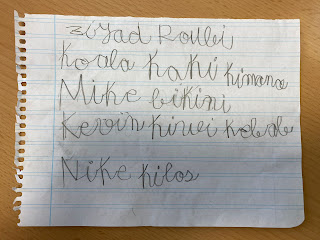 Ziyad Roubi
Koala Kaki Kimono
Mike bikini
Kevin Kiwi Kebab
Nike Kilos